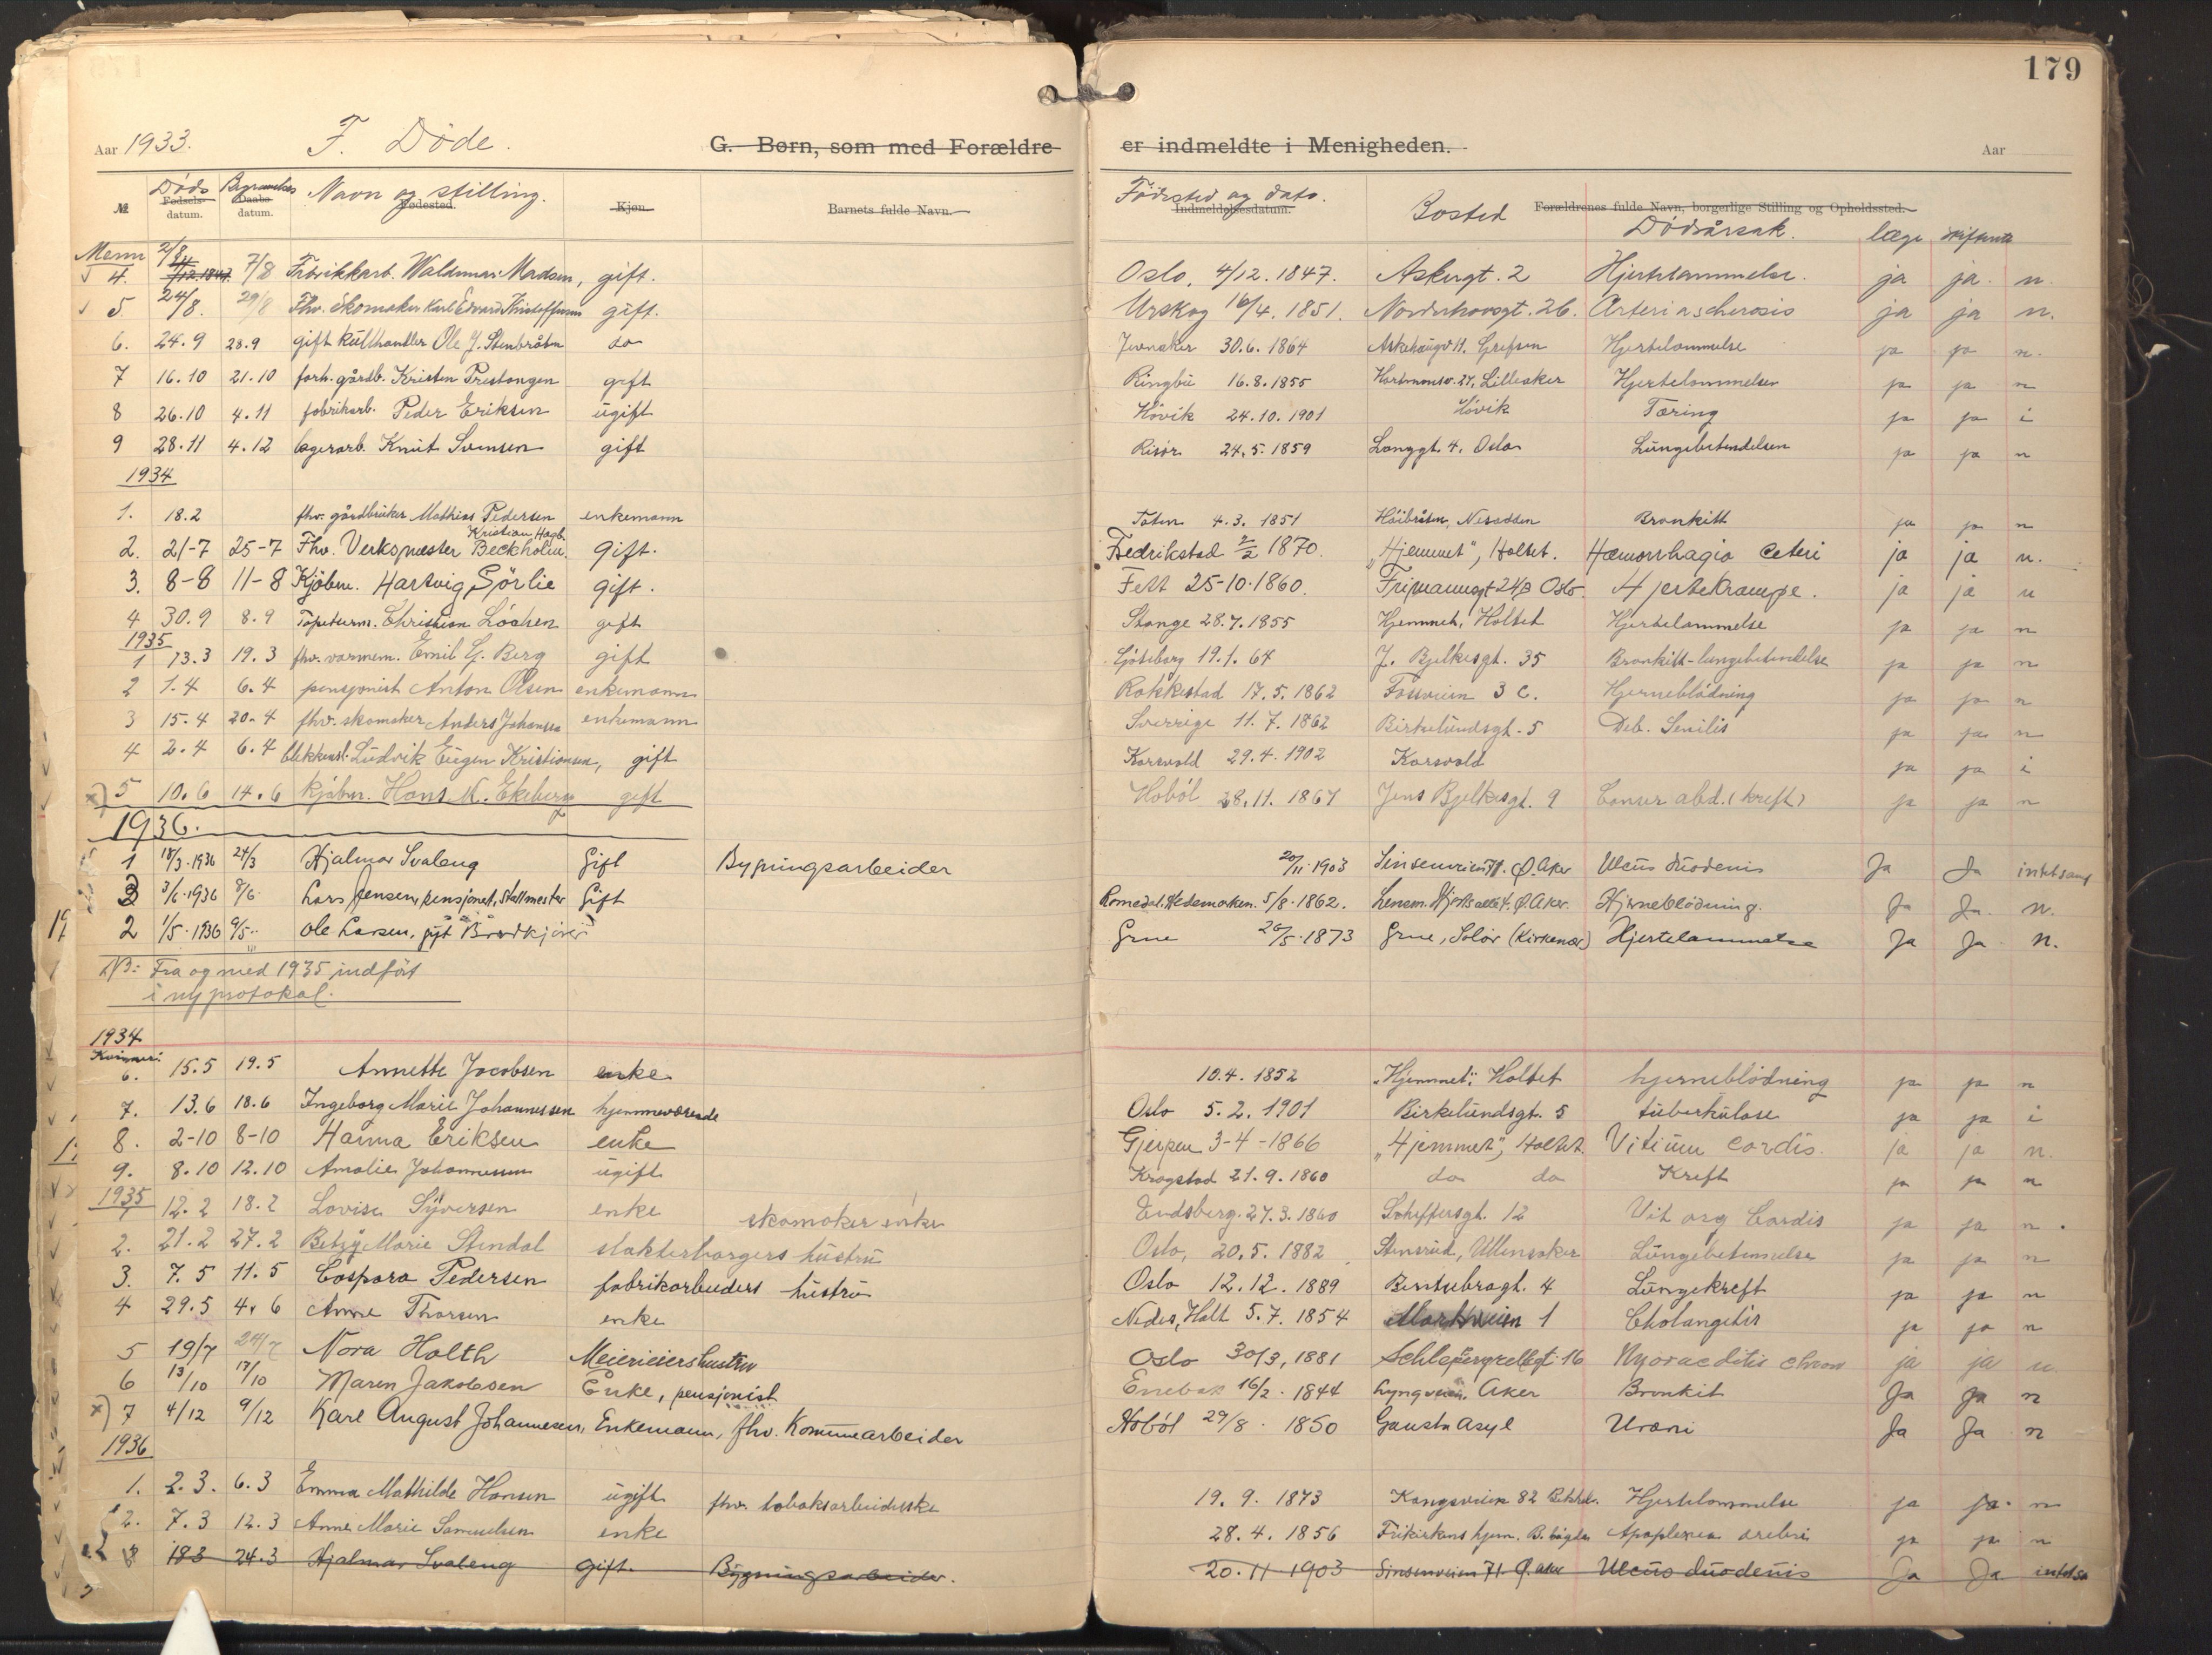 179
Aar 1933. F. Døde. G. Børn, som med Forældre er indmeldte i Menigheden. Aar
№ Døds Fødsels-datum. Begravelses Daabs datum. Navn og stilling. Fødested. Kjøn Barnets fulde Navn. Fødested og dato. Indmeldelsesdatum. Bosted Forældrenes fulde Navn, borgerlige Stilling og Opholdssted. Dødsårsak. læge skifterett
Menn
4. 2/8 4/12 1847 7/8 Fabrikkarb. Waldemar Madsen, gift. Oslo, 4/12. 1847. Askergt. 2 Hjertelammelse. ja ja. n.
5 24/8. 29/8 Fhv. Skomaker Karl Edvard Kristoffersen gift. Urskog 16/4. 1851. Nordrehovsgt. 26. Arteriascherosis ja ja n.
6. 24.9 28.9 gift kulthandler Ole J. Stenbråten do Jevnaker 30.6. 1864 Askehaugv 11. Grefsen Hjertelammelse ja ja n.
7 16.10 21.10 forh. gårdb. Kristen Prestangen gift Ringbu 16.8.1855 Hartmansv. 27, Lilleaker Hjertelammelsen ja ja n
8 26.10 4.11 fabrikarb. Peder Eriksen ugift Høvik 24.10.1901 Høvik Tæring ja ja i
9 28.11 4.12 lagerarb. Knut Svensen gift Risør 24.5.1859 Langgt. 4. Oslo Lungebetendelsen ja ja n
1934
1. 18.2 fhv. gårdbruker Mathias Pedersen enkemann Toten 4.3. 1851 Høibråten, Nesodden Bronkitt ja ja n
2. 21-7 25-7 Fhv. Verksmester Kristian Hagb. Beckholm. gift. Fredrikstad 2/2 1870. "Hjemmet", Holtet. Hæmorrhagia Ceteri ja ja n.
3. 8-8 11-8 Kjøbm. Hartvig Sørlie gift. Fett 25-10-1860. Frimannsgt 24B Oslo. Hjertekrampe. ja ja n
4 30.9 8.9 Tapeturm. Christian Løchen gift Stange 28.7.1855 Hjemmet, Holtet Hjertelammelse ja ja n
1935
1 13.3 19.3 fhv. varmem. Emil G. Berg gift Gøteborg 19.1.64 J. Bjelkesgt. 35 Bronkitt-lungebetendelse ja ja n
2 1.4 6.4 pensjonist Anton Olsen enkemann Rakkestad 17.5.1862 Fossveien 3 C. Hjerneblødning ja ja n
3 15.4 20.4 fhv. skomaker Anders Johansen enkemann Sverrige 11.7.1862 Birkelundsgt. 5 Deb. Senilis ja ja n
4 2.4 6.4 blikkensl. Ludvik Eugen Kristiansen, gift Korsvold 29.4.1902 Korsvold ja ja i
x) 5 10.6 14.6 kjøbm. Hans M. Ekeberg gift Hobøl 28.11.1867 Jens Bjelkesgt. 9 Canser abd. (kreft) ja ja n
1936.
1 18/3.1936 24/3 Hjalmar Svaleng Gift Bygningsarbeider 20/11.1903 Sinsenveien 71. Ø. Aker Ulcus duodenis Ja Ja intet
3 3/6.1936 8/6 Lars Jensen, pensjonert, Stallmester Gift Romedal. Hedemarken. 5/8.1862. Hjerneblødning. Ja Ja. N.
2 1/5.1936 9/5 Ole Larsen, gift Grue 20/5.1873 Grue, Solør (Kirkenær) Hjertelammelse Ja Ja N.
NB: Fra og med 1935 indført
i ny protokol.
1934
Kvinner:
6. 15.5 19.5 Annette Jacobsen enke 10.4.1852 "Hjemmet", Holtet hjerneblødning ja ja n
7. 13.6 18.6 Ingeborg Marie Johannessen hjemmeværende Oslo 5.2.1901 Birkelundsgt. 5 tuberkulose ja ja i
8. 2-10 8-10 Hanna Eriksen enke Gjerpen 3-4-1866 "Hjemmet", Holtet. Vitium Cordis. ja ja n.
9. 8.10 12.10 Amalie Johannessen ugift Kragstad 21.9.1860 do do Kreft ja ja n
1935
1 12.2 18.2 Lovise Syversen enke skomaker enke Eidsberg 27.3.1860 Schiffersgt. 12 Vit org Cordis ja ja n.
2. 21.2 27.2 Betzy Marie Stendal slakterborgers hustru Oslo, 20.5.1882 Stensrud, Ullensaker Lungebetennelse ja ja n
3. 7.5 11.5 Caspara Pedersen fabrikarbeiders hustru Oslo 12.12.1889 Bentsebragt. 4 Lungekreft ja ja n
4 29.5 4.6 Anne Thorsen enke Nedes, Holt 5.7.1854 Markveien 1 Cholangitis ja ja n
5 19/7 24/7 Nora Holth Meierieiers hustru Oslo 30/3, 1881 Schleppegrellsgt. 16 Myoracditis chron ja ja n.
6 13/10 17/10 Maren Jakobsen Enke, pensjonist Enebak 16/2.1844 Lyngveien. Aker Bronkit Ja Ja n
x) 7 4/12 9/12 Karl August Johannesen, Enkemann, fhv. Kommunearbeider Hobøl 29/8.1850 Gausta Asyl Uræmi Ja Ja n
1936
1. 2.3. 6.3 Emma Mathilde Hansen ugift fhv. tobaksarbeiderske 19.9.1873 Kongsveien 82 Bekkel. Hjertelammelse ja ja. n
2. 7.3 12.3 Anne Marie Samuelsen enke 28.4.1856 Frikirkens hjem. Apoplexia ja ja n
18.3 24.3 Hjalmar Svaleng Gift. Bygningsarbeider. 20.11 1903 Sinsenveien 71. Ø. Aker Ulcus duodenis Ja Ja